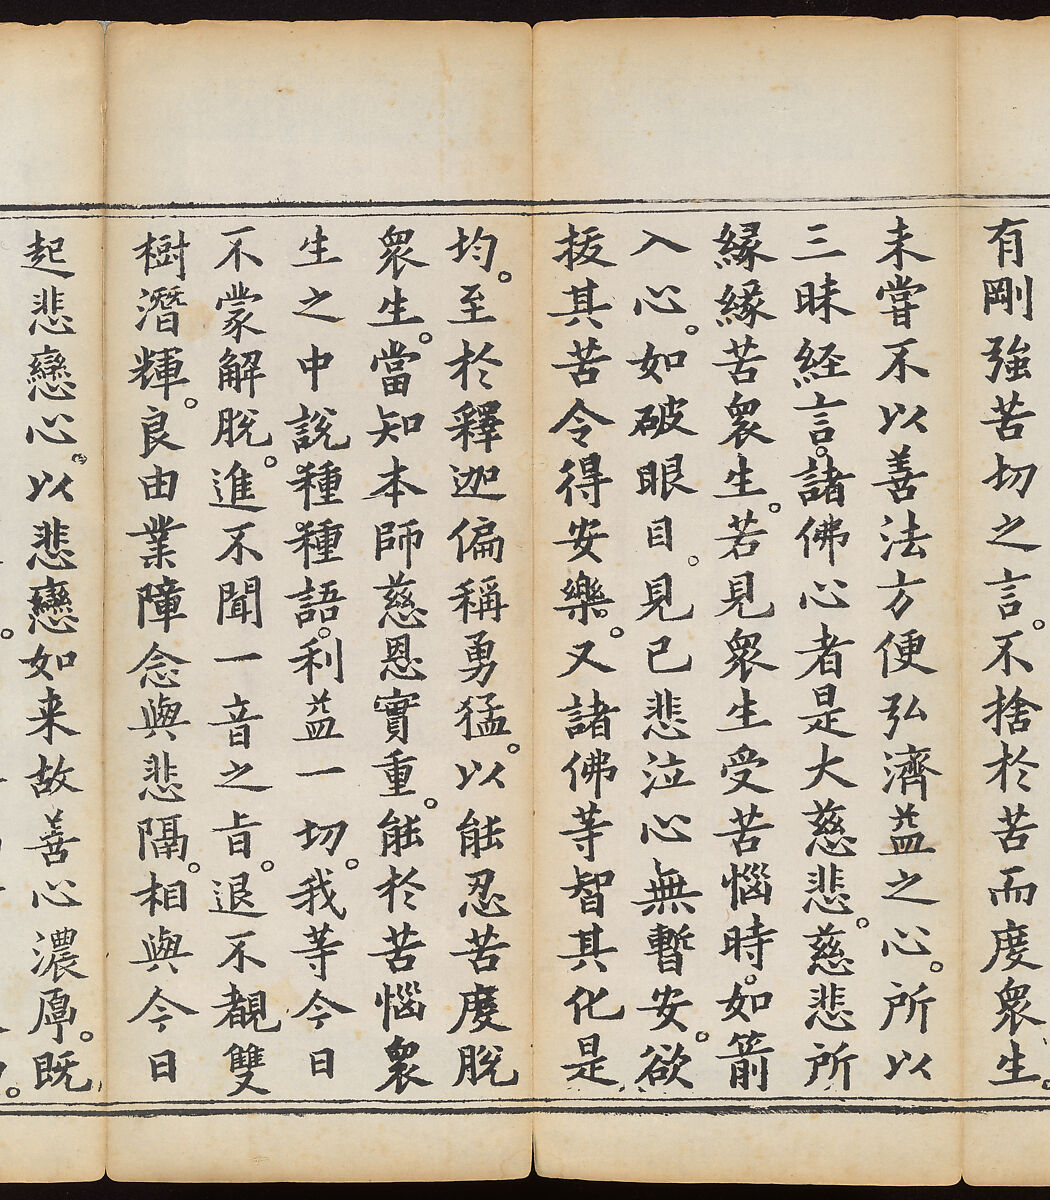 有剛強苦切之言。不捨於苦而度衆生。
未嘗不以善法方便弘濟益之心。所以
三昧経言。諸佛心者是大慈悲。慈悲所
縁緣苦衆生。若見衆生受苦惱時。如箭
入心。如破眼目。見已悲泣心無暫安。欲
拔其苦令得安樂。又諸佛等智其化是
均。至於釋迦偏稱勇猛。以能忍苦度脫
衆生。當知本師慈恩實重。能於苦惱衆
生之中說種種語。利益一切。我等今日
不蒙解脫。進不聞一音之旨。退不覩雙
樹潛輝。良由業障念與悲隔。相與今日
起悲戀心。以悲戀如来故善心濃厚。既